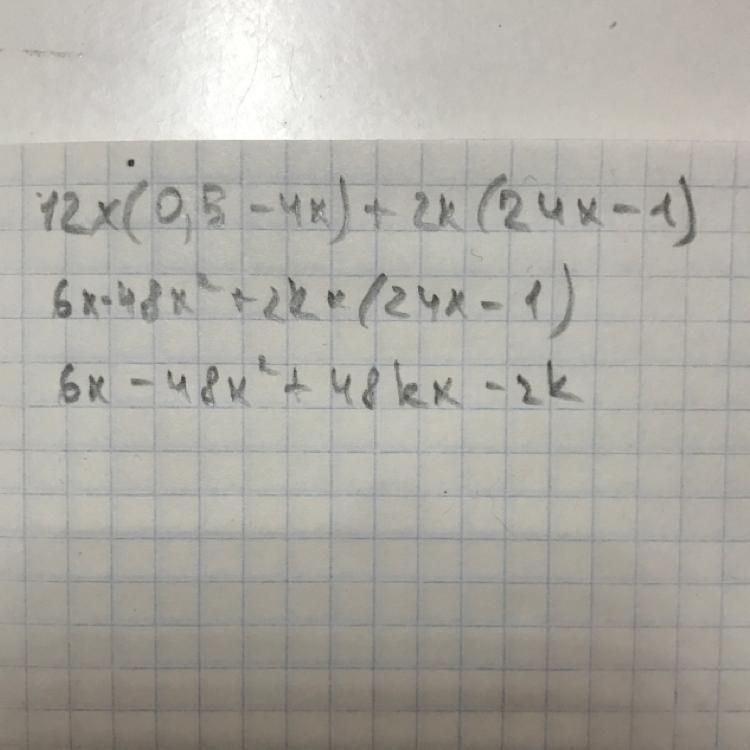 12x(0,5 - 4x) + 2k(24x - 1)
6x - 48x² + 2k × (24x - 1)
6x - 48x² + 48kx - 2k